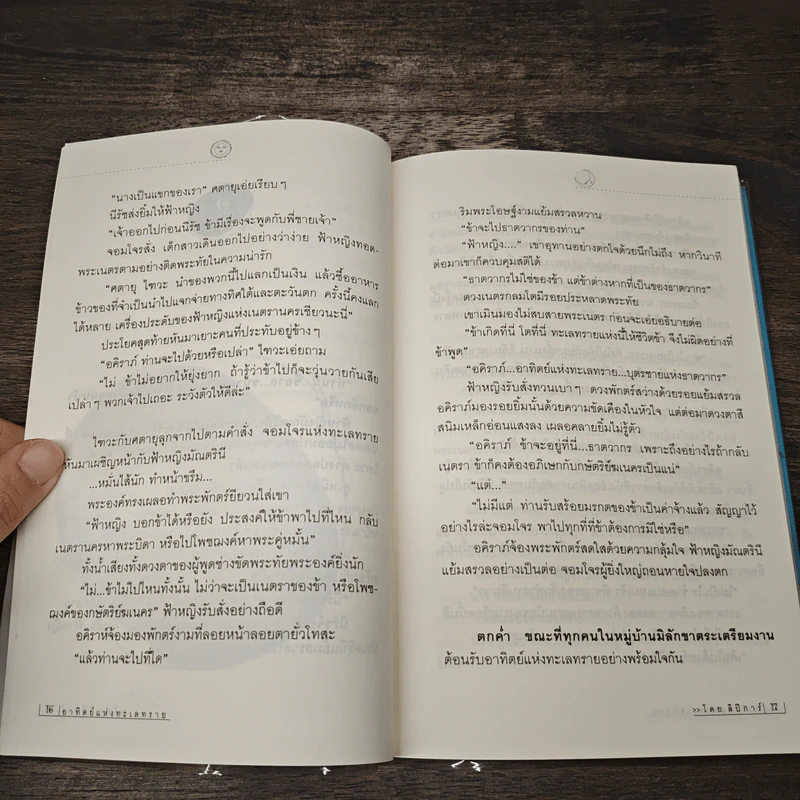 “นางเป็นแขกของเรา” ศตายุเอ่ยเรียบๆ
นีรัชส่งยิ้มให้ฟ้าหญิง
“เจ้าออกไปก่อนนีรัช ข้ามีเรื่องจะพูดกับพี่ชายเจ้า”
จอมโจรสั่ง เด็กสาวเดินออกไปอย่างว่าง่าย ฟ้าหญิงทอด-
พระเนตรตามอย่างติดพระทัยในความน่ารัก
“ศตายุ ไฑวะ นำของพวกนี้ไปแลกเป็นเงิน แล้วซื้ออาหาร
ข้าวของที่จำเป็นนำไปแจกจ่ายทางทิศใต้และตะวันตก ครั้งนี้คงแลก
ได้หลาย เครื่องประดับของฟ้าหญิงแห่งเนตรานครเชียวนะนี่”
ประโยคสุดท้ายหันมาเยาะคนที่ประทับอยู่ข้างๆ
“อคิราภ์ ท่านจะไปด้วยหรือเปล่า” ไฑวะเอ่ยถาม
“ไม่ ข้าไม่อยากให้ยุ่งยาก ถ้ารู้ว่าข้าไปก็จะวุ่นวายกันเสีย
เปล่าๆ พวกเจ้าไปเถอะ ระวังตัวให้ดีล่ะ”
ไฑวะกับศตายุลุกจากไปตามคำสั่ง จอมโจรแห่งทะเลทราย
หันมาเผชิญหน้ากับฟ้าหญิงมัณตรินี
...หมั่นไส้นัก ทำหน้าขรึม...
พระองค์ทรงเผลอทำพระพักตร์ยียวนใส่เขา
“ฟ้าหญิง บอกข้าได้หรือยัง ประสงค์ให้ข้าพาไปที่ไหน กลับ
เนตรานครหาพระบิดา หรือไปโพชฌงค์หาพระคู่หมั้น”
ทั้งน้ำเสียงทั้งดวงตาของผู้พูดช่างขัดพระทัยพระองค์ยิ่งนัก
“ไม่...ข้าไม่ไปไหนทั้งนั้น ไม่ว่าจะเป็นเนตราของข้า หรือโพช-
ฌงค์ของกษัตริย์ฆเนคร” ฟ้าหญิงรับสั่งอย่างถือดี
อคิราห์จ้องมองพักตร์งามที่ลอยหน้าลอยตายั่วโทสะ
“แล้วท่านจะไปที่ใด”
16 อาทิตย์แห่งทะเลทราย
ริมพระโอษฐ์งามแย้มสรวลหวาน
“ข้าจะไปธาตวากรของท่าน”
“ฟ้าหญิง....” เขาอุทานอย่างตกใจด้วยนึกไม่ถึง หากวินาที
ต่อมาเขาก็ควบคุมสติได้
“ธาตวากรไม่ใช่ของข้า แต่ข้าต่างหากที่เป็นของธาตวากร”
ดวงเนตรกลมโตมีรอยประหลาดพระทัย
เขาเมินมองไม่สบสายพระเนตร ก่อนจะเอ่ยอธิบายต่อ
“ข้าเกิดที่นี่ โตที่นี่ ทะเลทรายแห่งนี้ให้ชีวิตข้า จึงไม่ผิดอย่างที่
ข้าพูด”
“อคิราภ์...อาทิตย์แห่งทะเลทราย...บุตรชายแห่งธาตวากร”
ฟ้าหญิงรับสั่งทวนเบาๆ ดวงพักตร์สว่างด้วยรอยแย้มสรวล
อคิราภ์มองรอยยิ้มนั้นด้วยความขัดเคืองในหัวใจ แต่ต่อมาดวงตาสี
สนิมเหล็กอ่อนแสงลง เผลอคลายยิ้มไม่รู้ตัว
“อคิราภ์ ข้าจะอยู่ที่นี่...ธาตวากร เพราะถึงอย่างไรถ้ากลับ
เนตรา ข้าก็คงต้องอภิเษกกับกษัตริย์ฆเนครเป็นแน่”
“แต่...”
“ไม่มีแต่ ท่านรับสร้อยมรกตของข้าเป็นค่าจ้างแล้ว สัญญาไว้
อย่างไรล่ะจอมโจร พาไปทุกที่ที่ข้าต้องการมิใช่หรือ”
อคิราภ์จ้องพระพักตร์สดใสด้วยความกลุ้มใจ ฟ้าหญิงมัณตรินี
แย้มสรวลอย่างเป็นต่อ จอมโจรผู้ยิ่งใหญ่ถอนหายใจปลงตก
ตกค่ำ ขณะที่ทุกคนในหมู่บ้านมิลักขาตระเตรียมงาน
ต้อนรับอาทิตย์แห่งทะเลทรายอย่างพร้อมใจกัน
>>โดย ลิปิการ์ 17